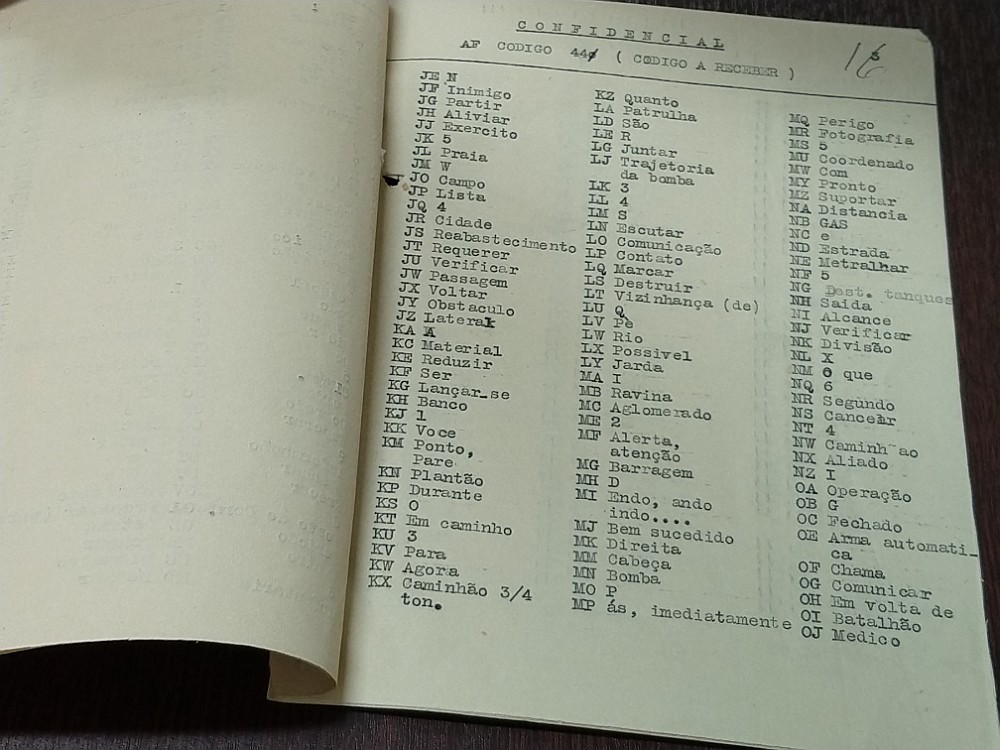 CONFIDENCIAL
AF CODIGO 44 ( CODIGO A RECEBER )
16
3
JE N
JF Inimigo
JG Partir
JH Aliviar
JJ Exercito
JK 5
JL Praia
JM W
JO Campo
JP Lista
JQ 4
JR Cidade
JS Reabastecimento
JT Requerer
JU Verificar
JW Passagem
JX Voltar
JY Obstaculo
JZ Lateral
KA A
KC Material
KE Reduzir
KF Ser
KG Lançar-se
KH Banco
KJ 1
KK Voce
KM Ponto,
Pare
KN Plantão
KP Durante
KS O
KT Em caminho
KU 3
KV Para
KW Agora
KX Caminhão 3/4
ton.
KZ Quanto
LA Patrulha
LD São
LE R
LG Juntar
LJ Trajetoria
da bomba
LK 3
LL 4
LM S
LN Escutar
LO Comunicação
LP Contato
LQ Marcar
LS Destruir
LT Vizinhança (de)
LU Q
LV Pé
LW Rio
LX Possivel
LY Jarda
MA I
MB Ravina
MC Aglomerado
ME 2
MF Alerta,
atenção
MG Barragem
MH D
MI Endo, ando
indo....
MJ Bem sucedido
MK Direita
MM Cabeça
MN Bomba
MO P
MP ás, imediatamente
MQ Perigo
MR Fotografia
MS 5
MU Coordenado
MW Com
MY Pronto
MZ Suportar
NA Distancia
NB GAS
NC e
ND Estrada
NE Metralhar
NF 5
NG Dest. tanques
NH Saida
NI Alcance
NJ Verificar
NK Divisão
NL X
NM O que
NQ 6
NR Segundo
NS Cancelar
NT 4
NW Caminhao
NX Aliado
NZ I
OA Operação
OB G
OC Fechado
OE Arma automati-
ca
OF Chama
OG Comunicar
OH Em volta de
OI Batalhão
OJ Medico